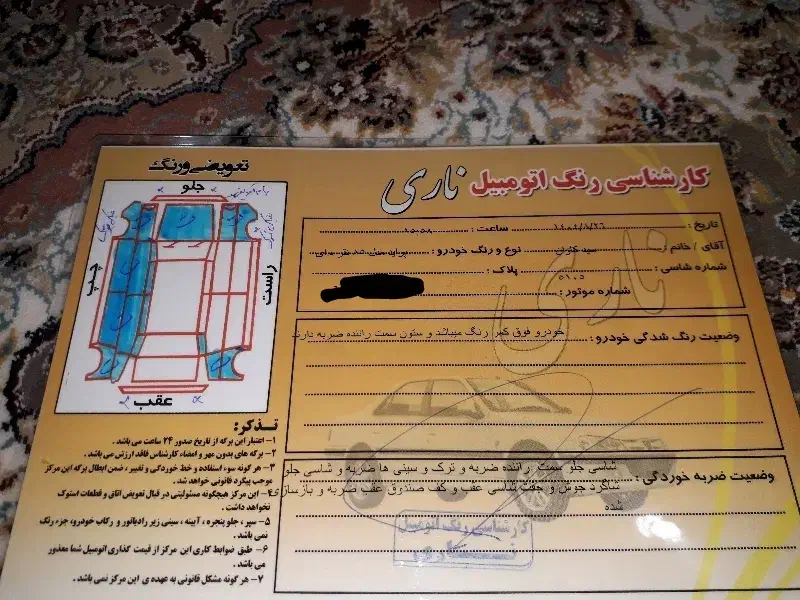 کارشناسی رنگ اتومبیل ناری
تاریخ : ۱۴۰۲/۸/۲۶ ساعت : ۱۵:۵۸
آقای / خانم : سید کاویان نوع و رنگ خودرو :
شماره شاسی : ۵۱۰۵ پلاک :
شماره موتور :
وضعیت رنگ شدگی خودرو : خودرو فوق گیر رنگ میباشد و ستون سمت راننده ضربه دارند
وضعیت ضربه خوردگی : شاسی جلو سمت راننده ضربه و ترک و سینی ها ضربه و شاسی جلو
شاگرد جوش و جفت شاسی عقب و کف صندوق عقب ضربه و بازسازی
شده
کارشناسی رنگ اتومبیل
ناری
تعویضی و رنگ
جلو
چپ
راست
عقب
تـذکر:
۱- اعتبار این برگه از تاریخ صدور ۲۴ ساعت می باشد .
۲- برگه های بدون مهر و امضاء کارشناس فاقد ارزش می باشد .
۳- هر گونه سوء استفاده و خط خوردگی و تغییر ، ضمن ابطال برگه این مرکز
موجب پیگرد قانونی خواهد شد .
۴- این مرکز هیچگونه مسئولیتی در قبال تعویض اتاق و قطعات استوک
نخواهد داشت .
۵- سپر ، جلو پنجره ، آیینه ، سینی زیر رادیاتور و رکاب خودرو، جزء رنگ
نمی باشد .
۶- طبق ضوابط کاری این مرکز از قیمت گذاری اتومبیل شما معذور
می باشد .
۷- هر گونه مشکل قانونی به عهده ی این مرکز نمی باشد .